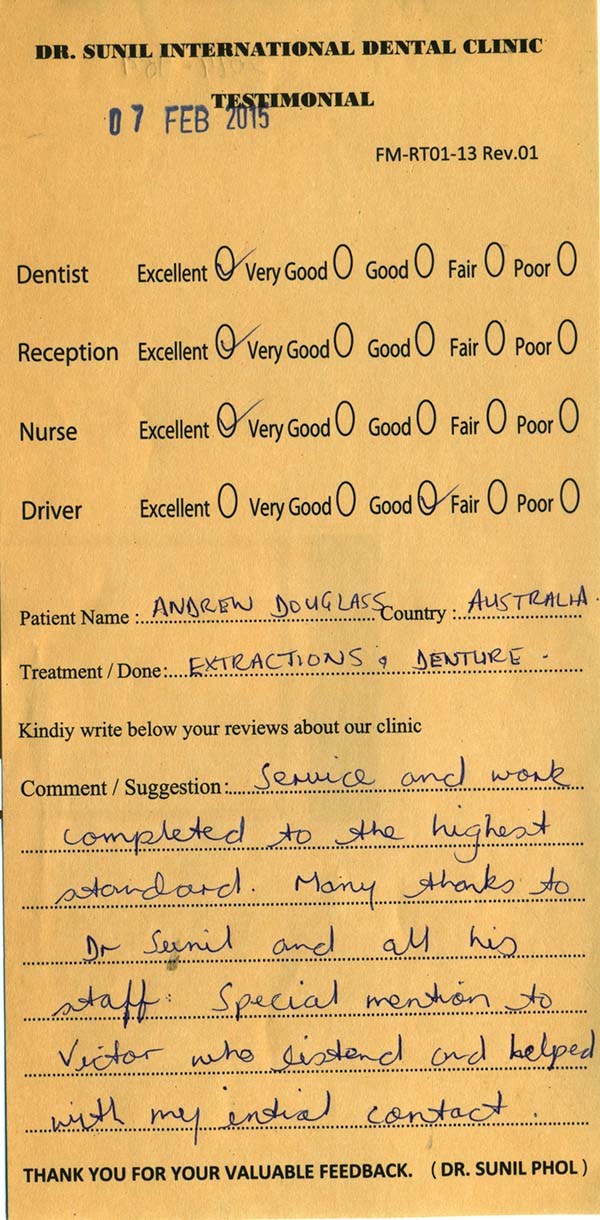 DR. SUNIL INTERNATIONAL DENTAL CLINIC
TESTIMONIAL
07 FEB 2015
FM-RT01-13 Rev.01
Dentist Excellent Very Good Good Fair Poor
Reception Excellent Very Good Good Fair Poor
Nurse Excellent Very Good Good Fair Poor
Driver Excellent Very Good Good Fair Poor
Patient Name : ANDREW DOUGLASS Country : AUSTRALIA.
Treatment / Done: EXTRACTIONS & DENTURE.
Kindiy write below your reviews about our clinic
Comment / Suggestion: Service and work
completed to the highest
standard. Many thanks to
Dr Sunil and all his
staff: Special mention to
Victor who listend and helped
with my intial contact.
THANK YOU FOR YOUR VALUABLE FEEDBACK. ( DR. SUNIL PHOL )